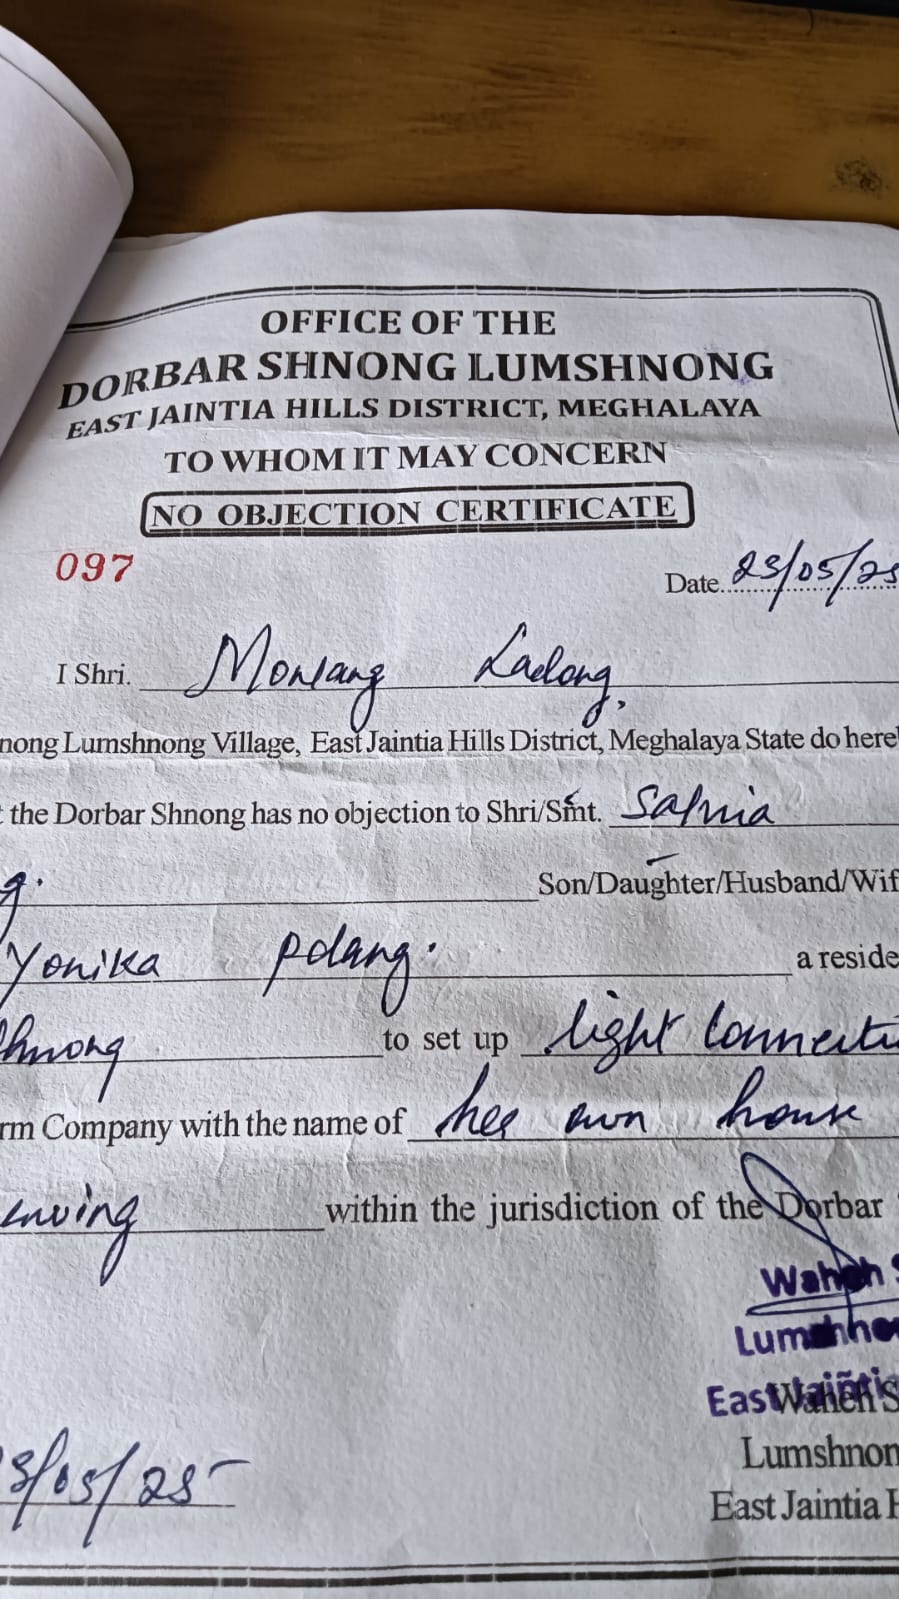 OFFICE OF THE
DORBAR SHNONG LUMSHNONG
EAST JAINTIA HILLS DISTRICT, MEGHALAYA
TO WHOM IT MAY CONCERN
NO OBJECTION CERTIFICATE
097
Date 23/05/25
I Shri. Monlang Ladong,
nong Lumshnong Village, East Jaintia Hills District, Meghalaya State do here
the Dorbar Shnong has no objection to Shri/Smt.
g. Son/Daughter/Husband/Wif
Yonika Pdang. a reside
hnong to set up light connecti
rm Company with the name of her own house
within the jurisdiction of the Dorbar
Waheh S
Lumshno
East Jainti
Waheh S
Lumshnon
East Jaintia H
3/05/25